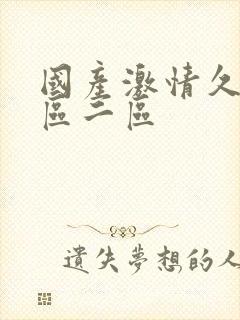 國產激情久
區二區
遺失夢想的人